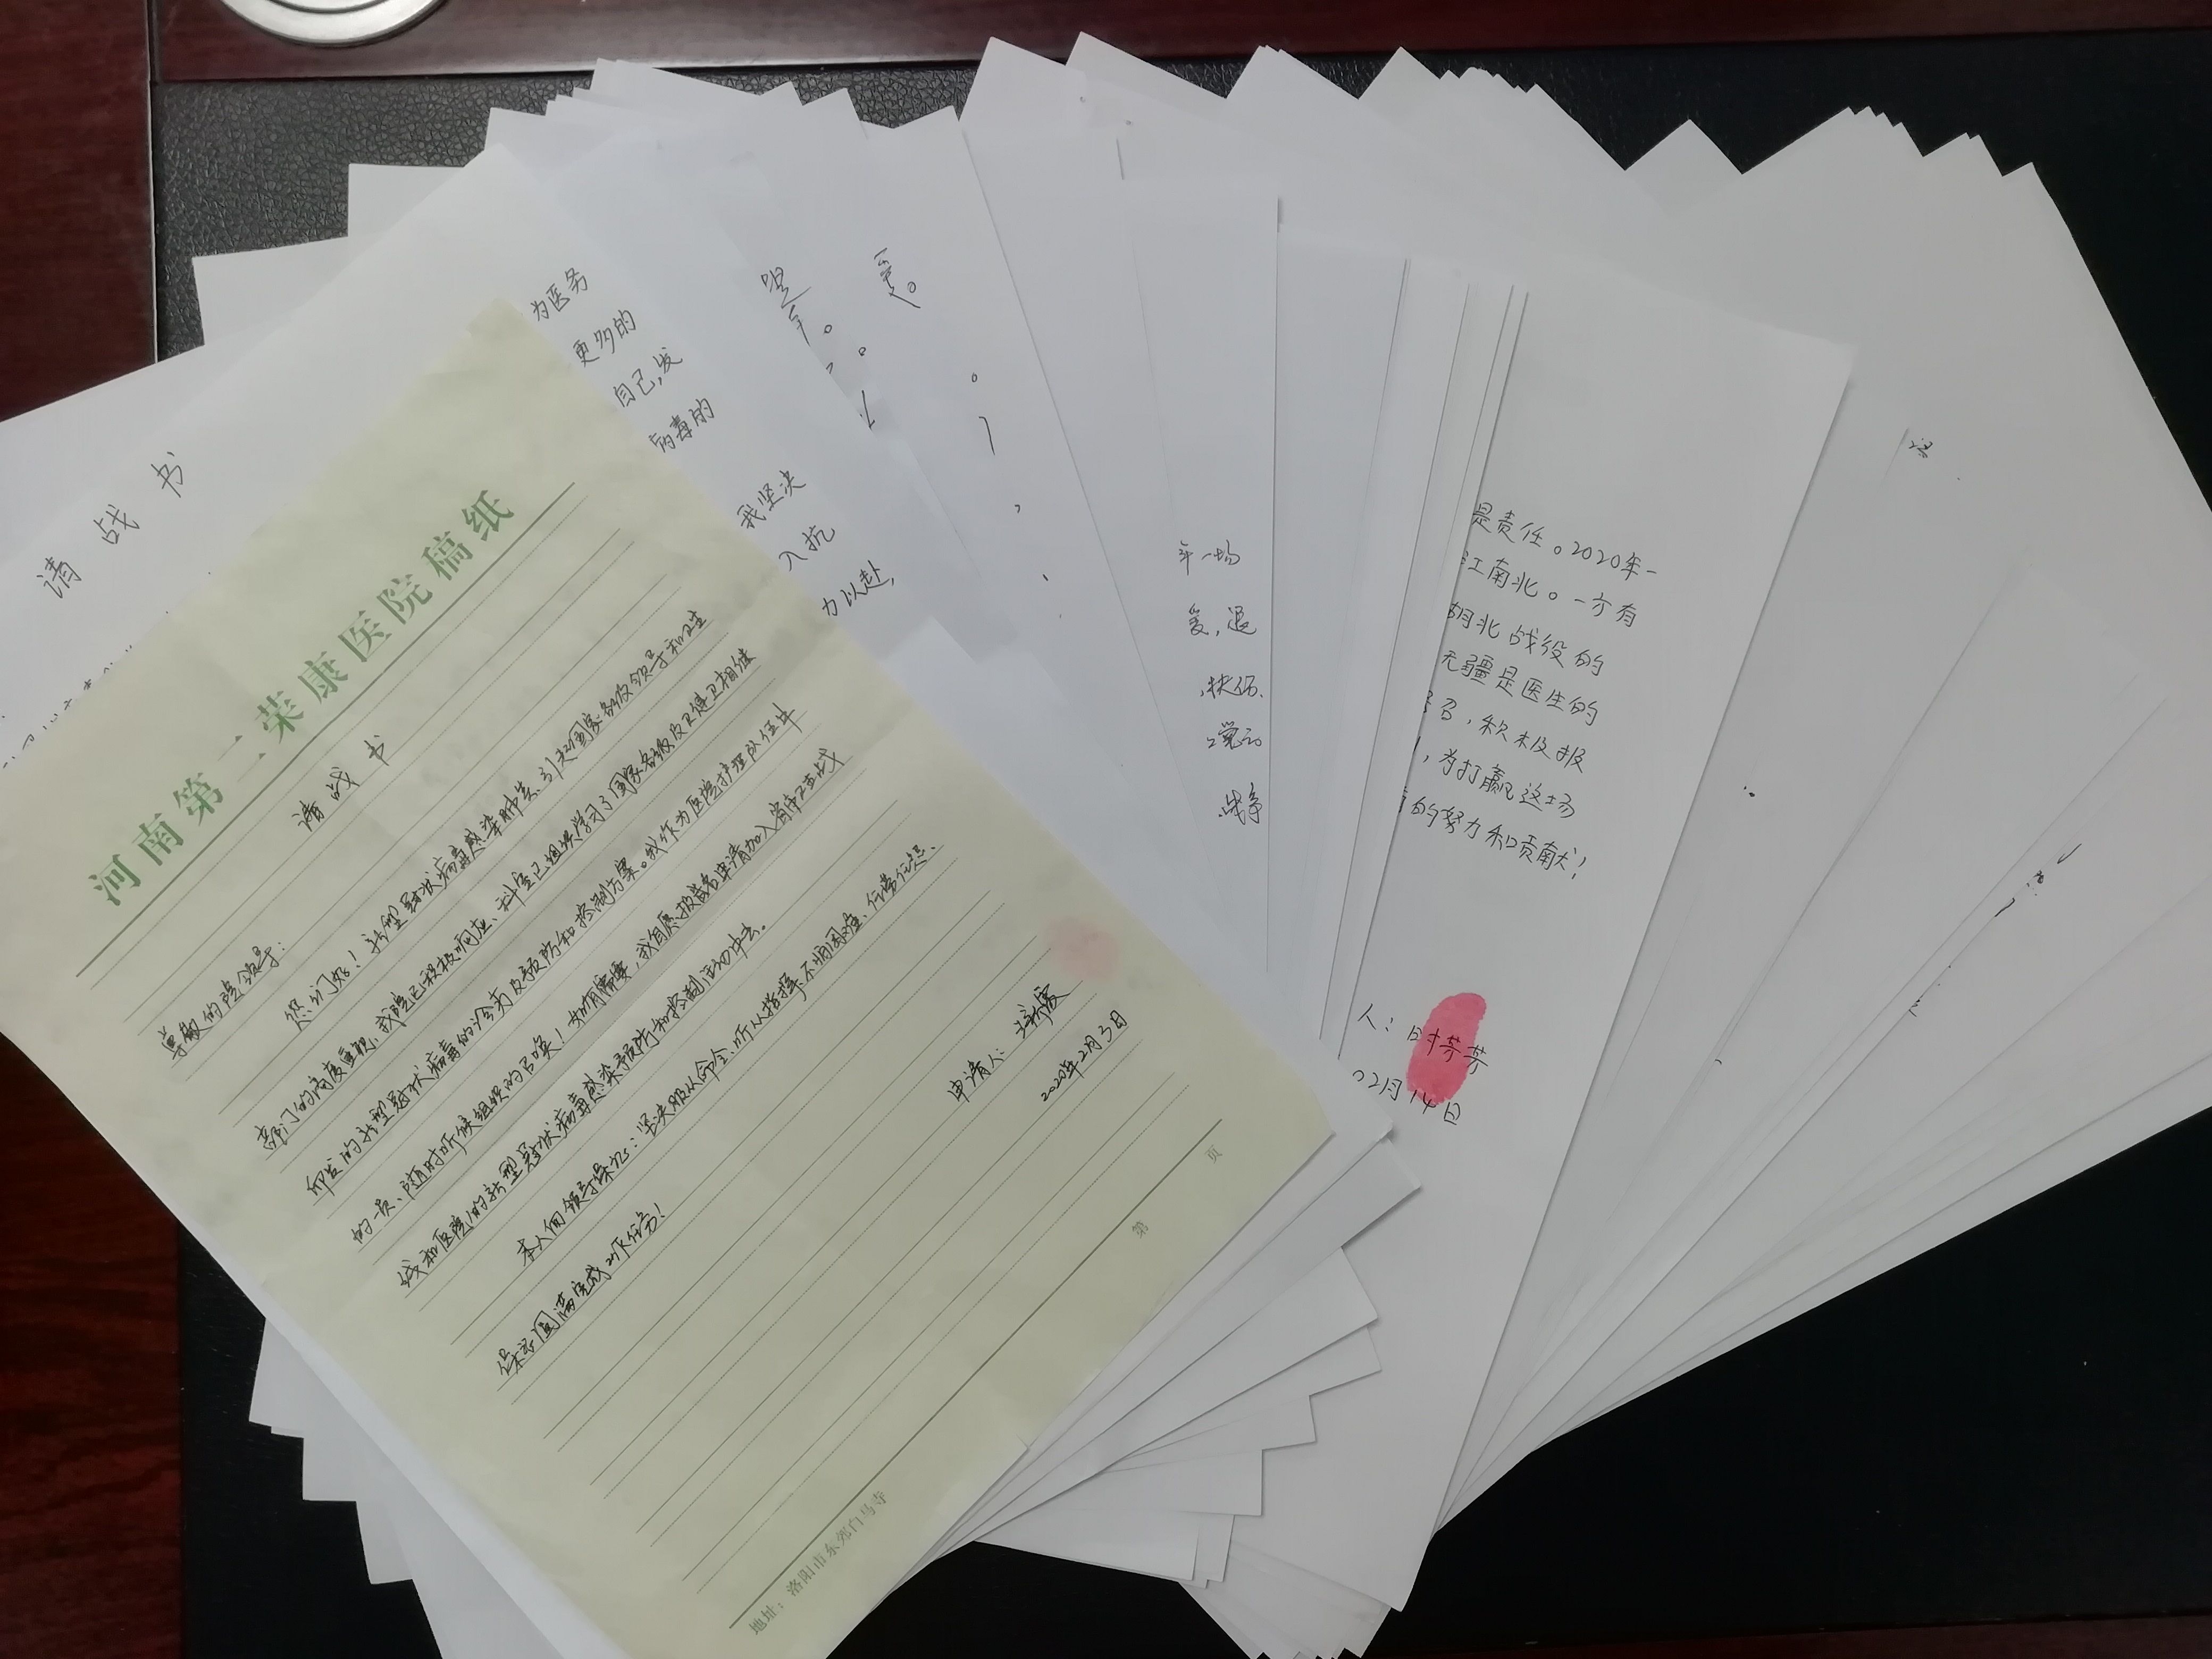 河南第二荣康医院稿纸
请战书
尊敬的院领导：
您们好！新型冠状病毒感染肺炎、引起国家各级领导和卫生
部门的高度重视、我院已积极响应、科室已组织学习了国家各级及卫健卫相继
印发的新型冠状病毒的诊疗及预防和控制方案。我作为医院护理队伍中
的一员、随时听候组织的召唤！如有需要，我自愿报名申请加入省市卫战
线和医院的新型冠状病毒感染预防和控制活动中去。
本人向领导保证：坚决服从命令、听从指挥、不惧困难、任劳任怨、
保证圆满完成工作任务！
申请人：
2020年2月3日
第 页
地址：洛阳市东郊白马寺
请战书
为医务
更多的
自己,发
病毒的
我坚决
入抗
力以赴,
年一场
爱,退
战争
是责任。2020年一
江南北。一方有
胡北战役的
无疆是医生的
召，积极报
，为打赢这场
的努力和贡献！
人：时芳芳
02月14日